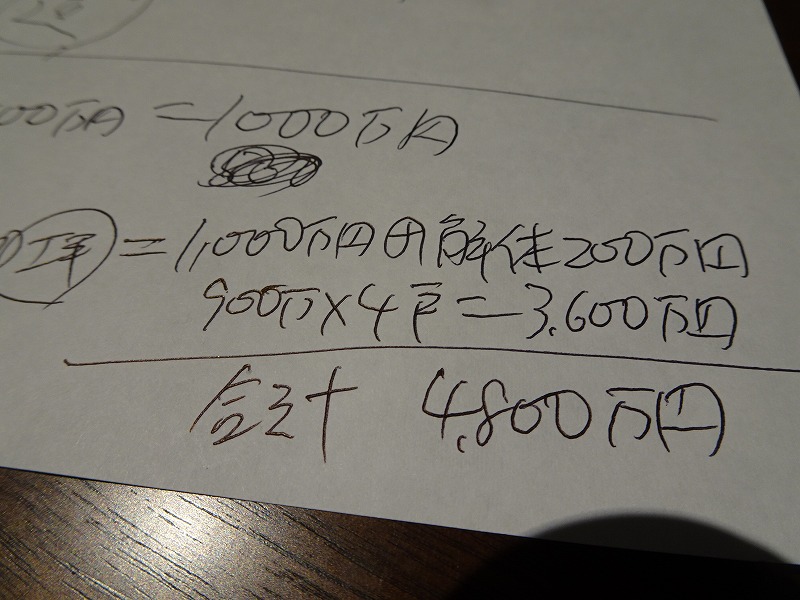 00万円 =1000万円
=1,000万円 解体200万円
900万×4戸=3,600万円
合計 4,800万円